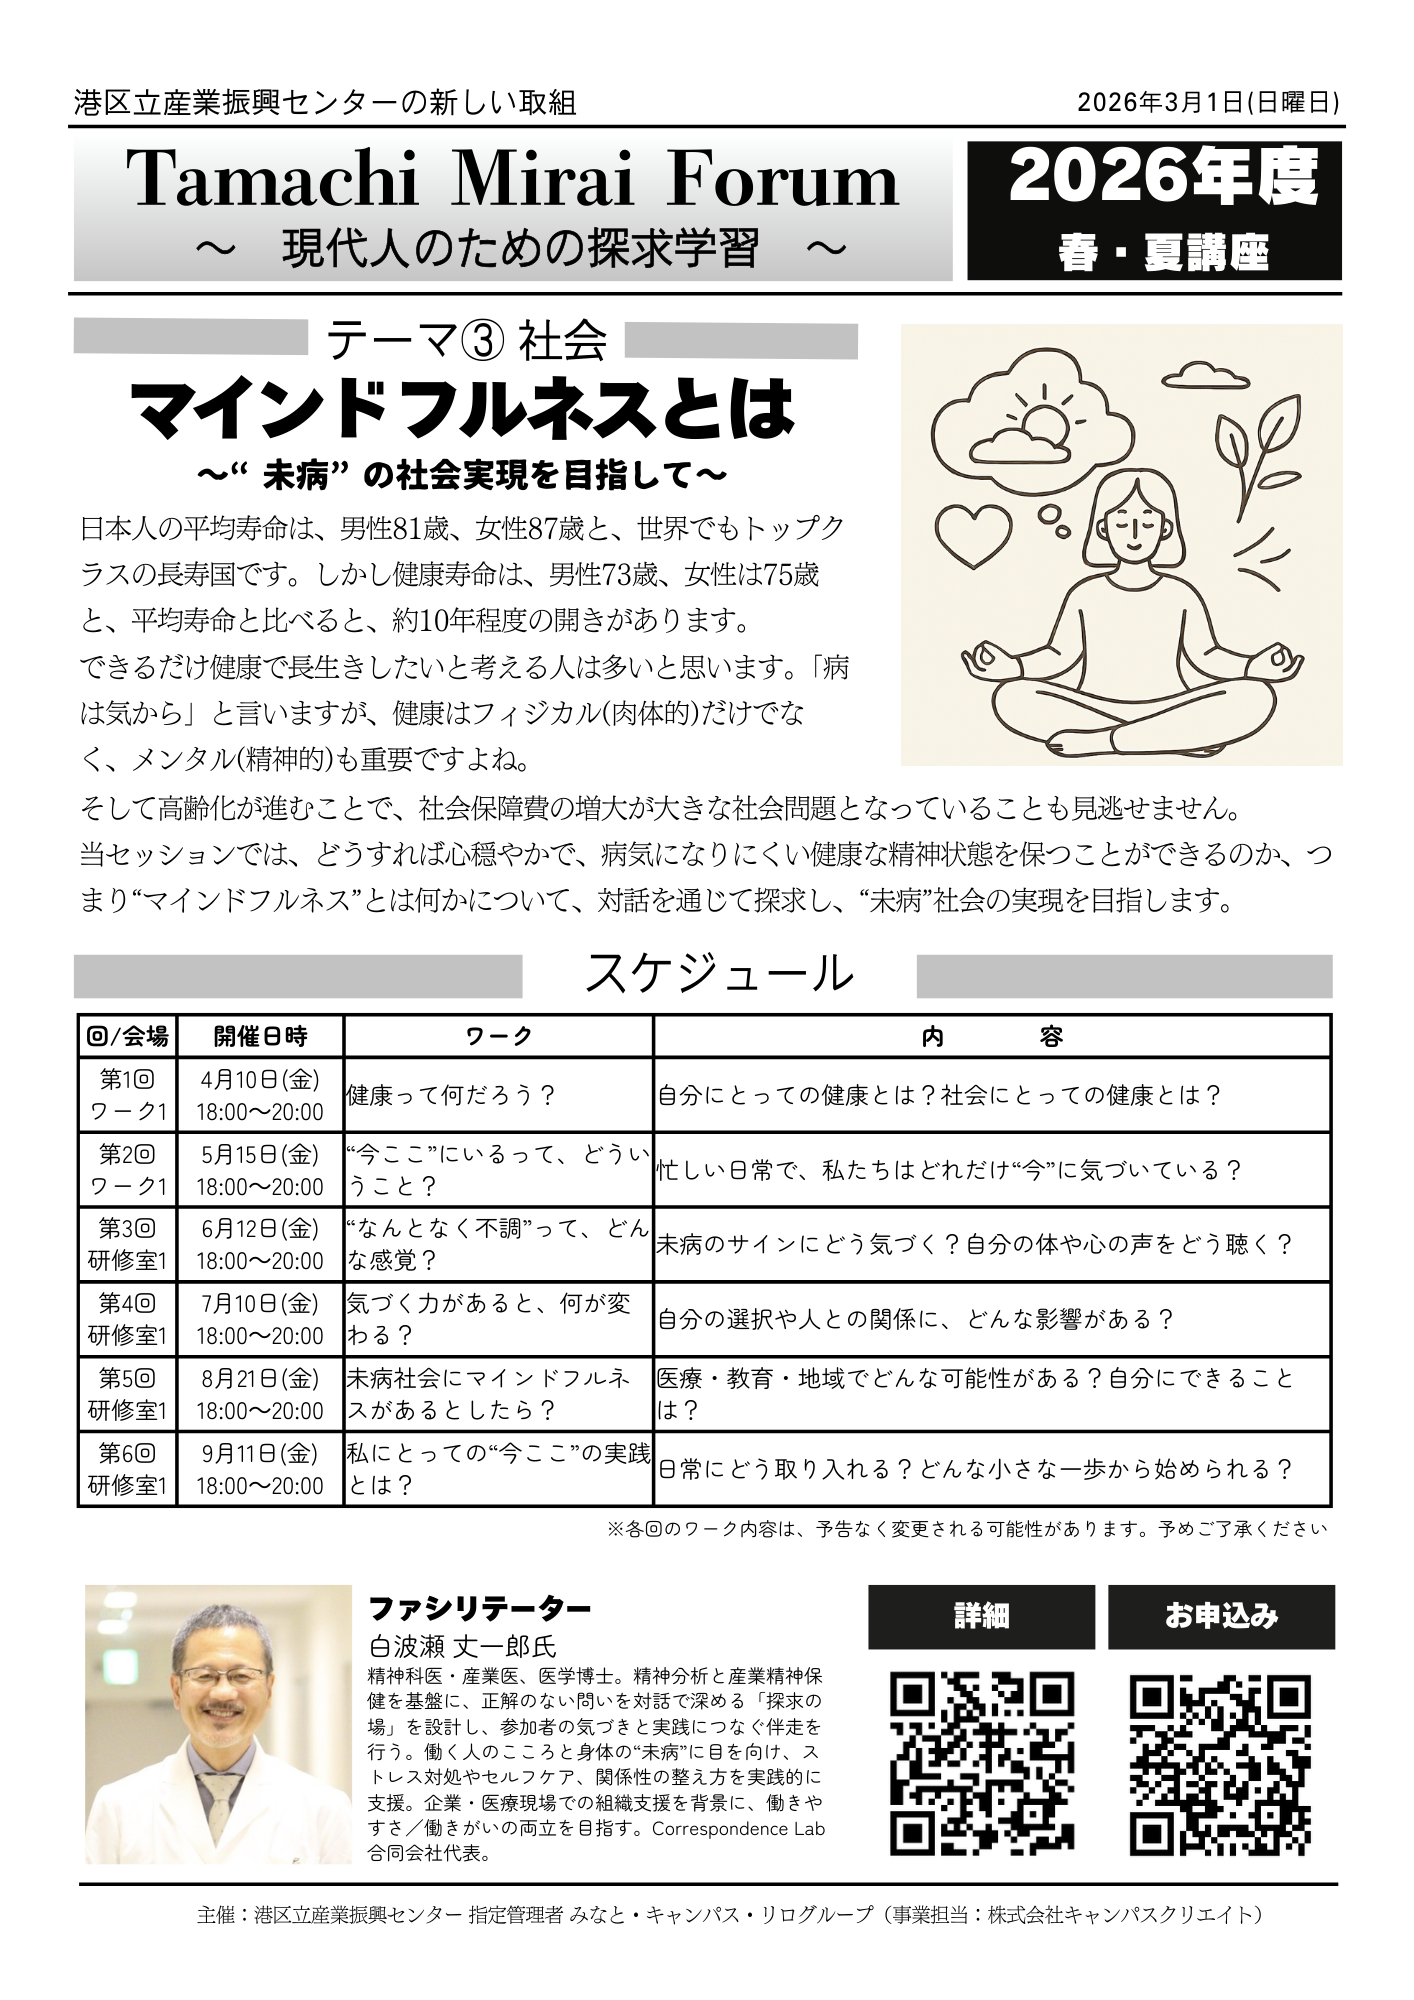 港区立産業振興センターの新しい取組
2026年3月1日(日曜日)
Tamachi Mirai Forum
～ 現代人のための探求学習 ～
2026年度
春・夏講座
テーマ③ 社会
マインドフルネスとは
～“ 未病” の社会実現を目指して～
日本人の平均寿命は、男性81歳、女性87歳と、世界でもトップク
ラスの長寿国です。しかし健康寿命は、男性73歳、女性は75歳
と、平均寿命と比べると、約10年程度の開きがあります。
できるだけ健康で長生きしたいと考える人は多いと思います。「病
は気から」と言いますが、健康はフィジカル(肉体的)だけでな
く、メンタル(精神的)も重要ですよね。
そして高齢化が進むことで、社会保障費の増大が大きな社会問題となっていることも見逃せません。
当セッションでは、どうすれば心穏やかで、病気になりにくい健康な精神状態を保つことができるのか、つ
まり“マインドフルネス”とは何かについて、対話を通じて探求し、“未病”社会の実現を目指します。
スケジュール
回/会場 開催日時 ワーク 内 容
第1回
ワーク1
4月10日(金)
18:00～20:00
健康って何だろう？
自分にとっての健康とは？社会にとっての健康とは？
第2回
ワーク1
5月15日(金)
18:00～20:00
“今ここ”にいるって、どうい
うこと？
忙しい日常で、私たちはどれだけ“今”に気づいている？
第3回
研修室1
6月12日(金)
18:00～20:00
“なんとなく不調”って、どん
な感覚？
未病のサインにどう気づく？自分の体や心の声をどう聴く？
第4回
研修室1
7月10日(金)
18:00～20:00
気づく力があると、何が変
わる？
自分の選択や人との関係に、どんな影響がある？
第5回
研修室1
8月21日(金)
18:00～20:00
未病社会にマインドフルネ
スがあるとしたら？
医療・教育・地域でどんな可能性がある？自分にできること
は？
第6回
研修室1
9月11日(金)
18:00～20:00
私にとっての“今ここ”の実践
とは？
日常にどう取り入れる？どんな小さな一歩から始められる？
※各回のワーク内容は、予告なく変更される可能性があります。予めご了承ください
ファシリテーター
白波瀬 丈一郎氏
精神科医・産業医、医学博士。精神分析と産業精神保
健を基盤に、正解のない問いを対話で深める「探求の
場」を設計し、参加者の気づきと実践につなぐ伴走を
行う。働く人のこころと身体の“未病”に目を向け、ス
トレス対処やセルフケア、関係性の整え方を実践的に
支援。企業・医療現場での組織支援を背景に、働きや
すさ／働きがいの両立を目指す。Correspondence Lab
合同会社代表。
詳細
お申込み
主催：港区立産業振興センター 指定管理者 みなと・キャンパス・リログループ（事業担当：株式会社キャンパスクリエイト）